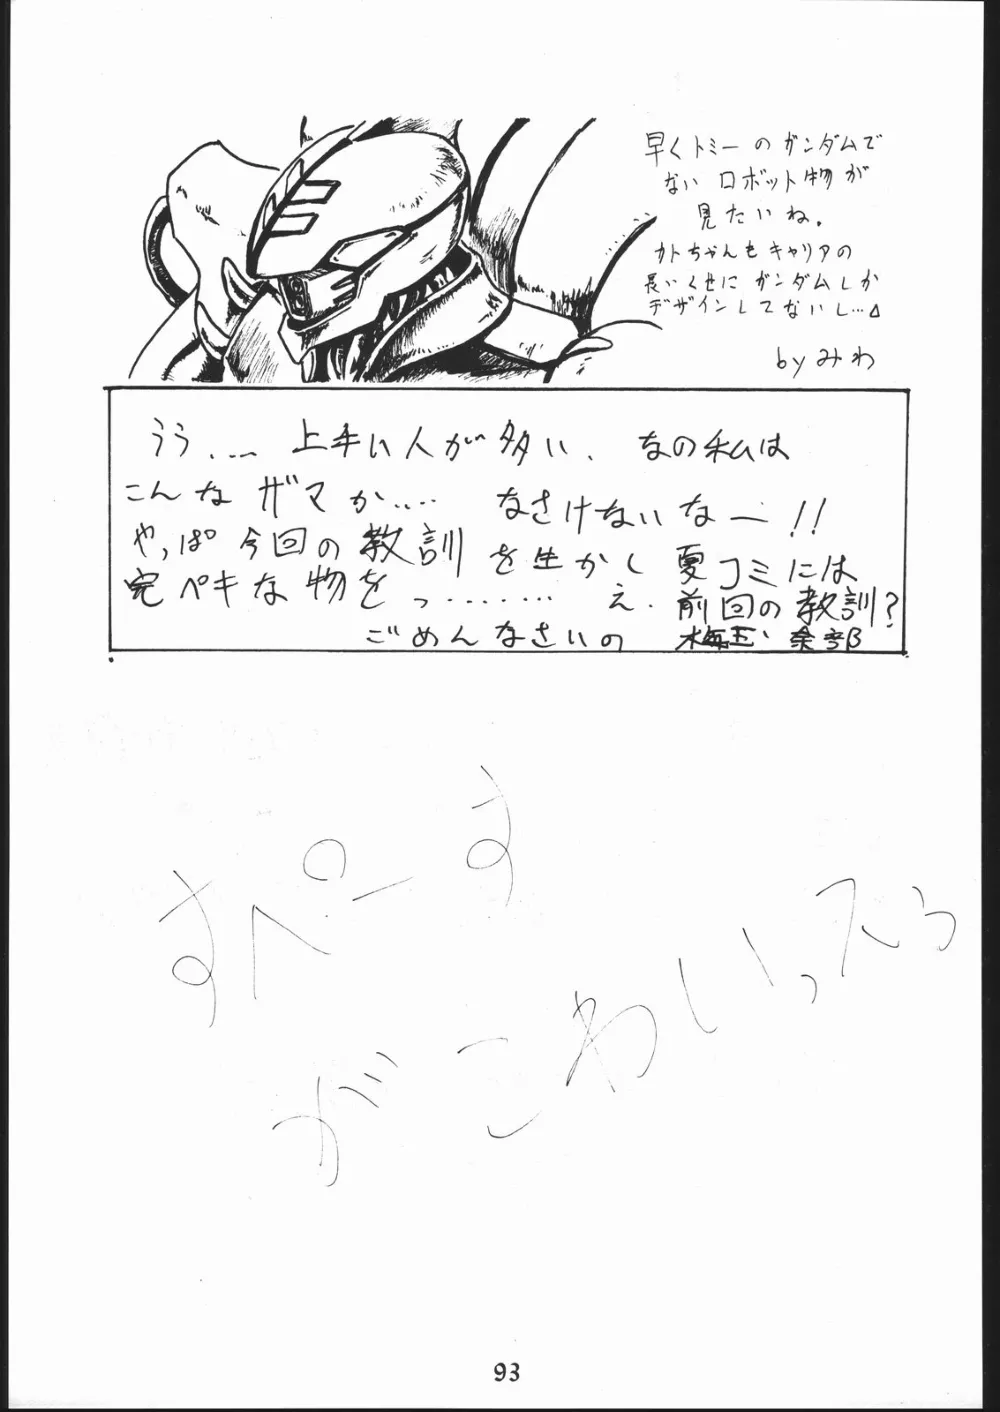 早くトミーのガンダムで
ないロボット物が
見たいね。
カトちゃんもキャリアの
長いくせにガンダムしか
デザインしてないし…
byみわ
うう.... 上手い人が多い、なの私は
こんなザマか.... なさけないなー!!
やっぱ今回の教訓を生かし夏コミには
完ペキな物をっ........ え、前回の教訓?
ごめんなさいの 梅玉
すぺーす
がこわいってう
93